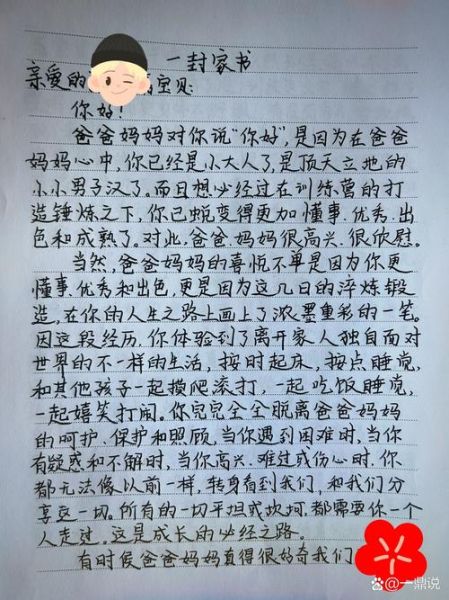 一封家书
亲爱的 宝贝:
你好!
爸爸妈妈对你说"你好",是因为在爸爸
妈妈心中,你已经是小大人了,是顶天立地的
小小男子汉了。而且想必经过在训练营的打
造锤炼之下,你已蜕变得更加懂事.优秀.出
色和成熟了。对此,爸爸.妈妈很高兴.很欣慰。
当然,爸爸妈妈的喜悦不单是因为你更
懂事.优秀和出色,更是因为这几日的淬炼锻
造,在你的人生之路上画上了浓墨重彩的一笔。
因这段经历,你体验到了离开家人独自面对
世界的不一样的生活,按时起床,按点睡觉,
和其他孩子一起摸爬滚打,一起吃饭睡觉,
一起嬉笑打闹。你完完全全脱离爸爸妈妈
的呵护.保护和照顾,当你遇到困难时,当你
有疑惑和不解时,当你高兴.难过或伤心时.你
都无法像以前一样,转身看到我们,和我们分
享这一切。所有的一切平坦或坎坷.都需要你一个
人走过。这是成长的必经之路。
有时候爸爸妈妈真得很好奇我们
Baidu百科@一鼎说